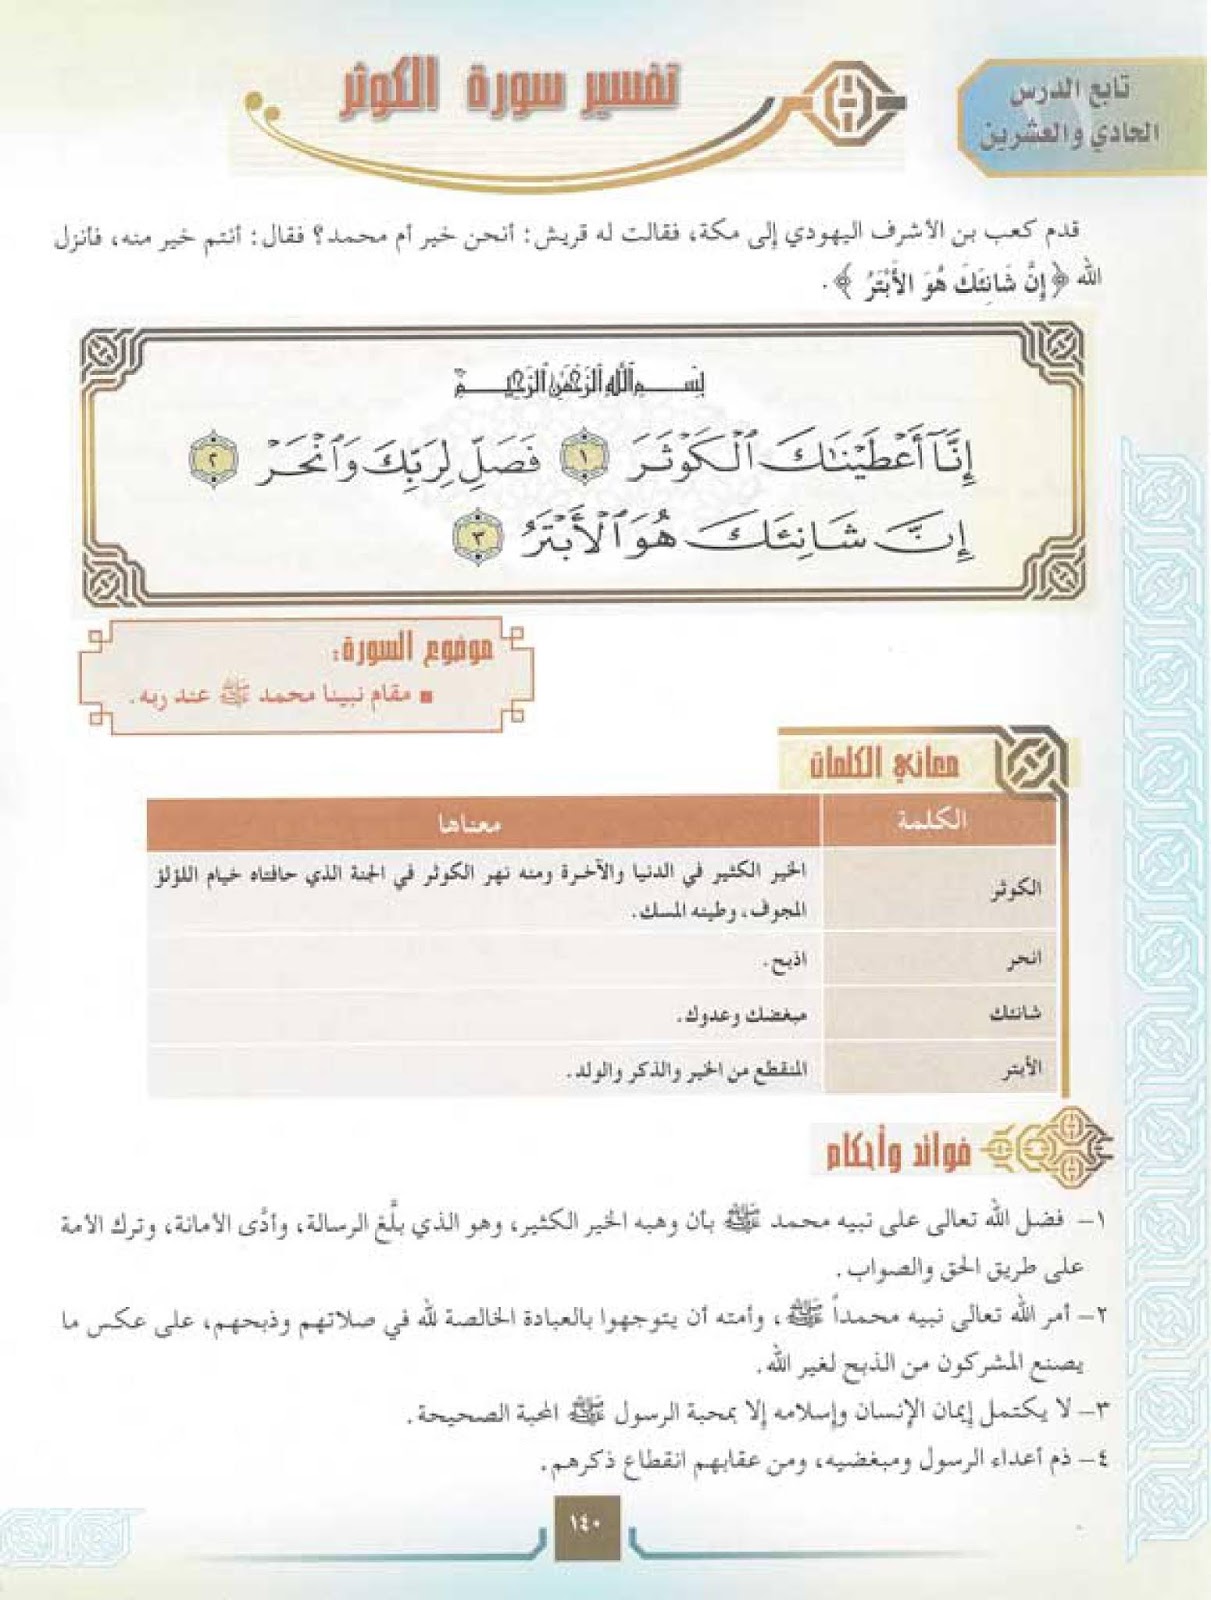 تابع الدرس
الحادي والعشرين
تفسير سورة الكوثر
قدم كعب بن الأشرف اليهودي إلى مكة، فقالت له قريش: أنحن خير أم محمد؟ فقال: أنتم خير منه، فأنزل
الله ﴿إِنَّ شَانِئَكَ هُوَ الأَبْتَرُ﴾.
بِسْمِ ٱللَّهِ ٱلرَّحْمَٰنِ ٱلرَّحِيمِ
إِنَّآ أَعْطَيْنَٰكَ ٱلْكَوْثَرَ ١ فَصَلِّ لِرَبِّكَ وَٱنْحَرْ ٢
إِنَّ شَانِئَكَ هُوَ ٱلْأَبْتَرُ ٣
موضوع السورة:
■ مقام نبينا محمد ﷺ عند ربه.
معاني الكلمات
الكلمة معناها
الكوثر الخير الكثير في الدنيا والآخرة ومنه نهر الكوثر في الجنة الذي حافتاه خيام اللؤلؤ
المجوف، وطينه المسك.
انحر اذبح.
شانئك مبغضك وعدوك.
الأبتر المنقطع من الخير والذكر والولد.
فوائد وأحكام
١- فضل الله تعالى على نبيه محمد ﷺ بأن وهبه الخير الكثير، وهو الذي بلَّغ الرسالة، وأدَّى الأمانة، وترك الأمة
على طريق الحق والصواب.
٢- أمر الله تعالى نبيه محمداً ﷺ، وأمته أن يتوجهوا بالعبادة الخالصة لله في صلاتهم وذبحهم، على عكس ما
يصنع المشركون من الذبح لغير الله.
٣- لا يكتمل إيمان الإنسان وإسلامه إلا بمحبة الرسول ﷺ المحبة الصحيحة.
٤- ذم أعداء الرسول ومبغضيه، ومن عقابهم انقطاع ذكرهم.
١٤٠